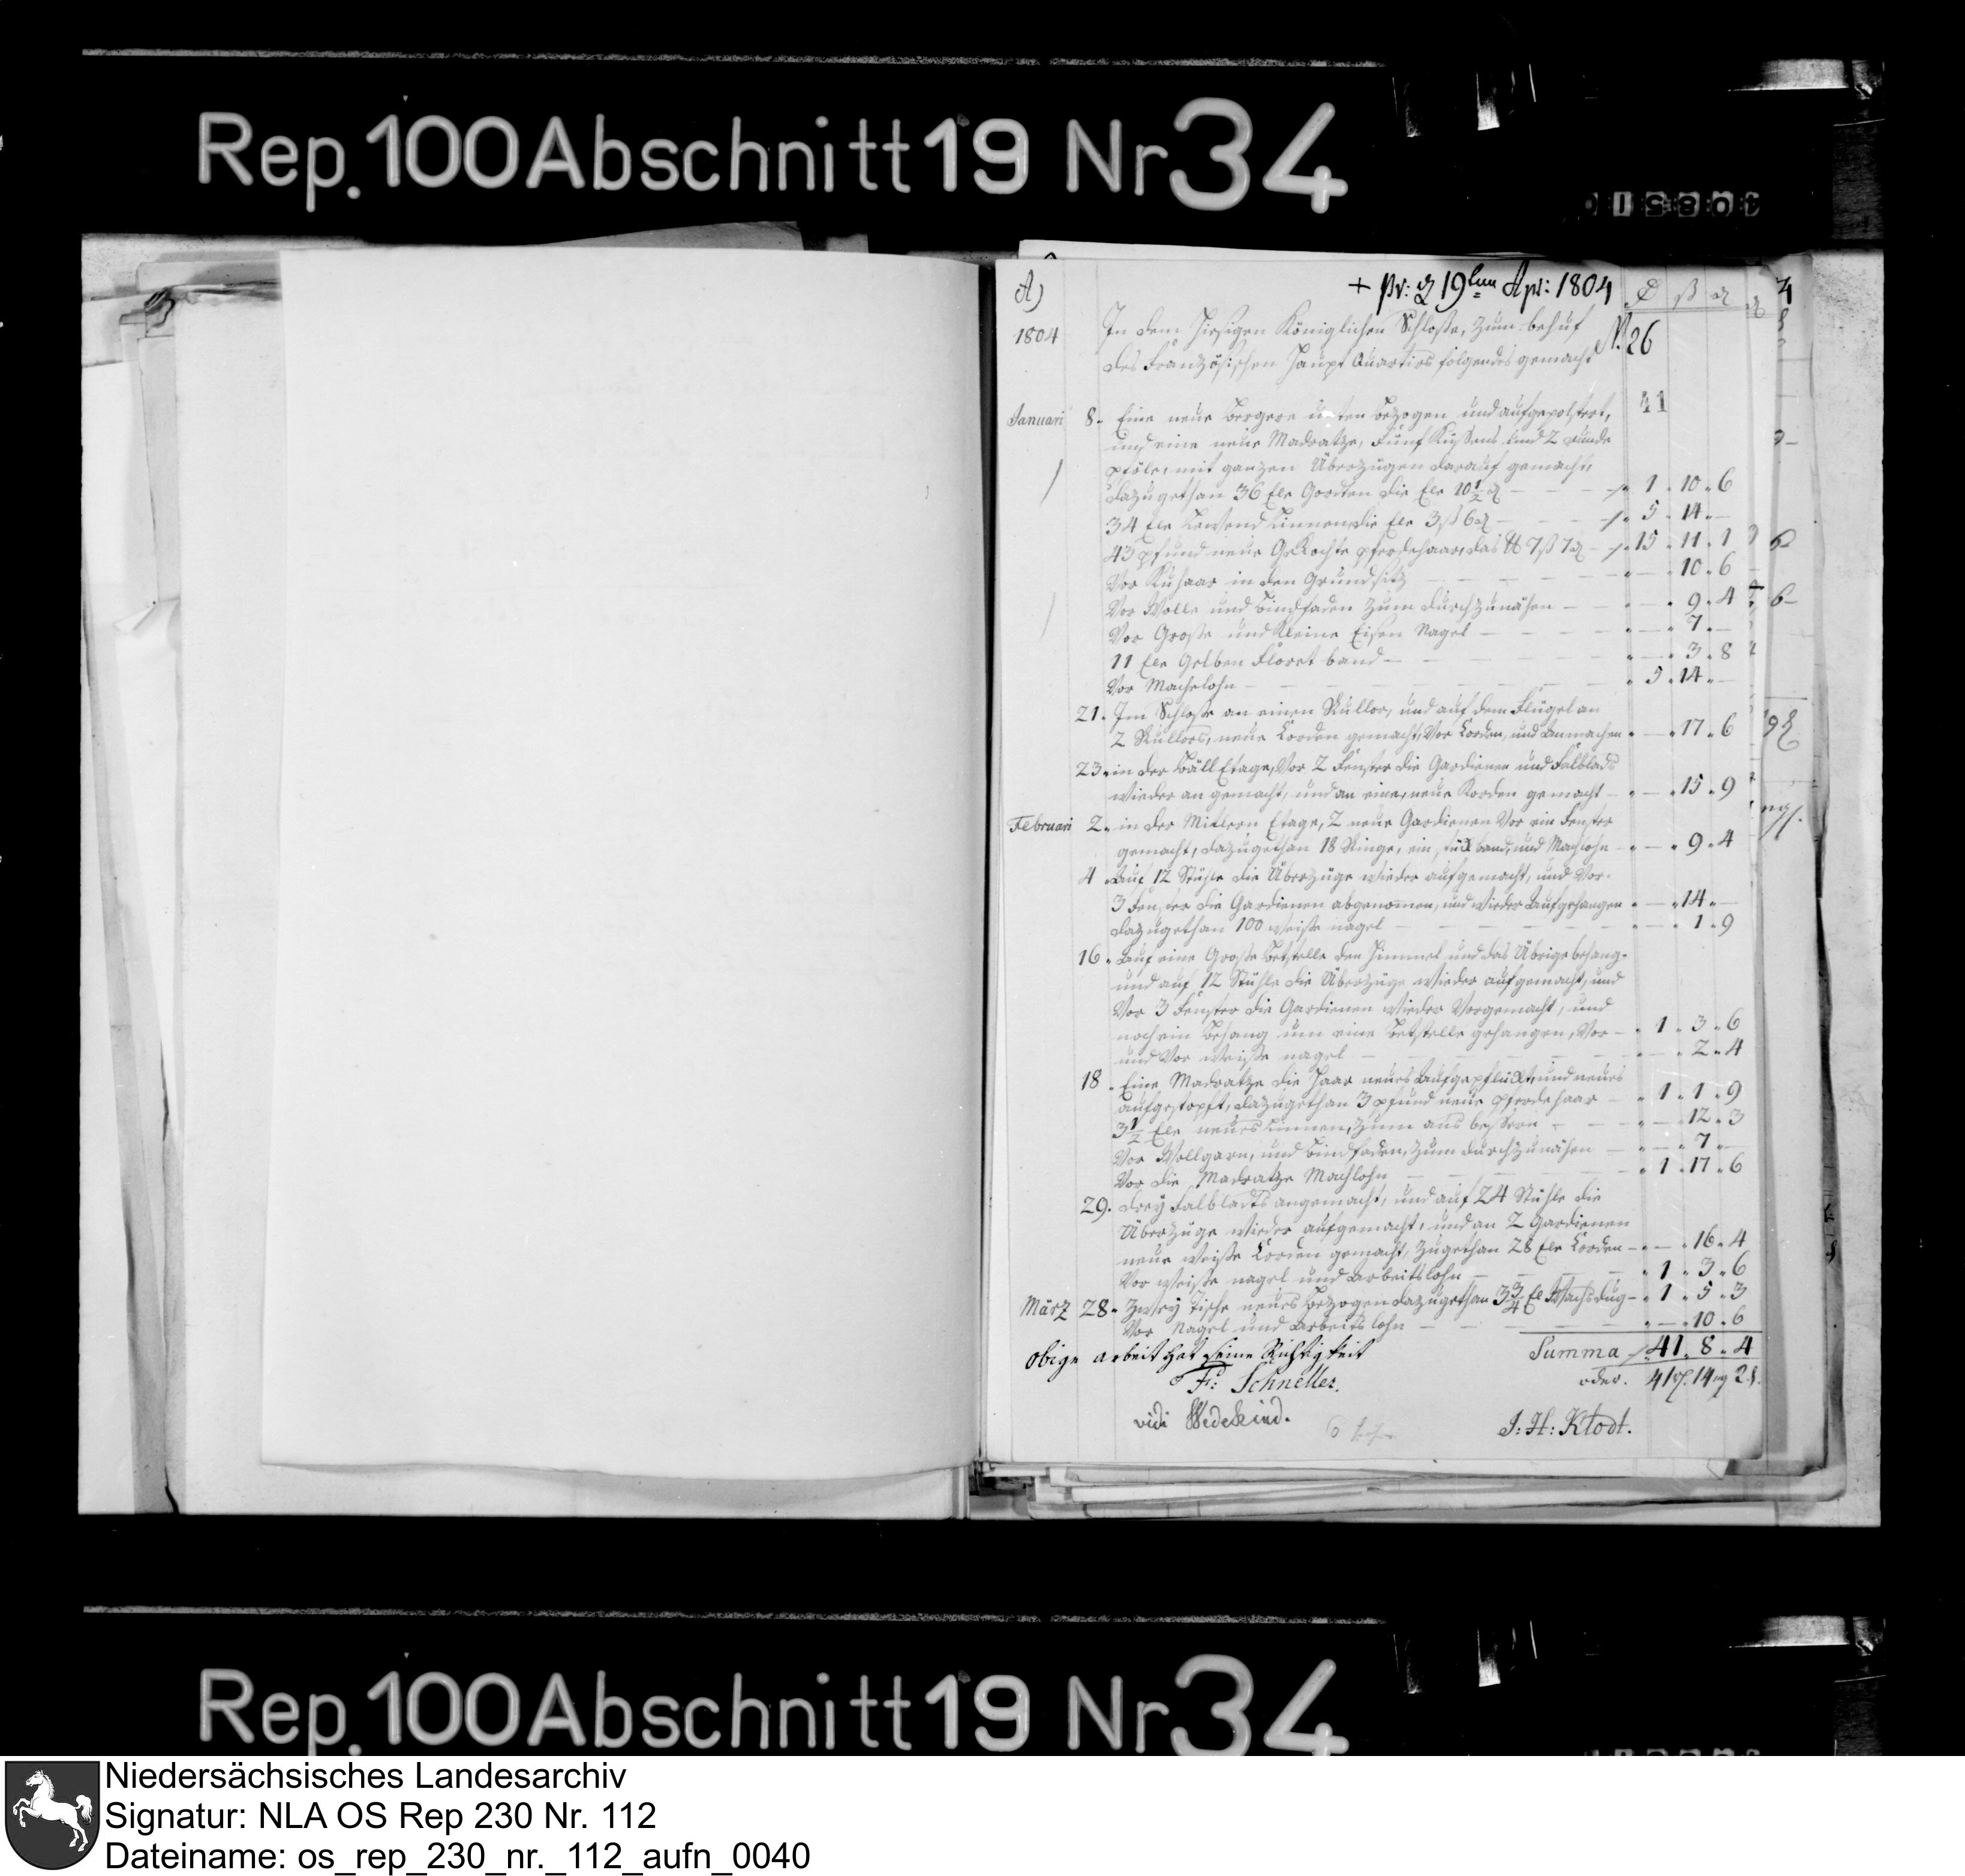 Rep. 100 Abschnitt 19 Nr 34
A)
+ pr: d 19ten Apr: 1804
1804 In dem Hiesigen Königlichen Schloße, zum behuf N. 26
des Französischen Haupt Quartirs folgendes gemacht
41
Januari 8. Eine neue Bergere unten bezogen und aufgepolstert,
und eine neue Madratze, fünf Küssens und 2 runde
pföle, mit ganzen Überzügen darauf gemacht,
dazugethan 36 Ele Goorten die Ele 10 1/2 d — 1 . 10 . 6
34 Ele Lewend Linnen, die Ele 3 ß 6 d — 5 . 14 . —
43 pfund neue Gekochte pferdehaar, das ℔ 7 ß 7 d — 15 . 11 . 1
Vor Kuhaar in den Grundsitz — 10 . 6
Vor Wolle und Bindfaden zum durchzunähen — 9 . 4
Vor Große und Kleine Eisen Nagel — 7 . —
11 Ele Gelben Floret band — 3 . 8
Vor Machelohn — 5 . 14 . —
21. Im Schloße an einen Rullor, und auf dem Flügel an
2 Rullors, neue Corden gemacht, Vor Corden, und Anmachen — 17 . 6
23. in der Bäll Etage, Vor 2 Fenster die Gardienen und Falblads
wieder an gemacht, und an eine, neue Korden gemacht — 15 . 9
Februari 2. in der Mittern Etage, 2 neue Gardienen Vor ein Fenster
gemacht, dazugethan 18 Ringe, ein stück band, und Machlohn — 9 . 4
4. Auf 12 Stühle die Überzüge wieder aufgemacht, und Vor
3 Fenster die Gardienen abgenomen, und wieder Aufgehangen — 14 . —
dazugethan 100 weisse nagel — 1 . 9
16. Auf eine Große Betstelle den Himmel und das Übrige behang
und auf 12 Stühle die Überzüge wieder aufgemacht, und
Vor 3 Fenster die Gardienen wieder Vorgemacht, und
noch ein Behang um eine Betstelle gehangen, Vor — 1 . 3 . 6
und Vor weisse nagel — 2 . 4
18. Eine Madratze die Haar neues Aufgepflückt, und neues
aufgestopft, dazugethan 3 pfund neue pferdehaar — 1 . 1 . 9
3 1/2 Ele neues Linnen, zum aus bessern — 12 . 3
Vor Wollgarn, und Bindfaden, zum durchzunähen — 7 . —
Vor die Madratze Machlohn — 1 . 17 . 6
29. drey Falbladts angemacht, und auf 24 Stühle die
Überzüge wieder aufgemacht, und an 2 Gardienen
neue weisse Corden gemacht, zugethan 28 Ele Corden — 16 . 4
Vor weisse nagel und Arbeitslohn — 1 . 3 . 6
März 28. Zwey Tische neues bezogen dazugethan 3 3/4 El Wachsdug — 1 . 5 . 3
Vor Nagel und Arbeitslohn — 10 . 6
Summa 41 . 8 . 4
Obige arbeit hat seine Richtigkeit
oder. 41 14 2
F: Schneller.
vidi Wedekind.
J: H: Klodt.
Rep. 100 Abschnitt 19 Nr 34
Niedersächsisches Landesarchiv
Signatur: NLA OS Rep 230 Nr. 112
Dateiname: os_rep_230_nr._112_aufn_0040